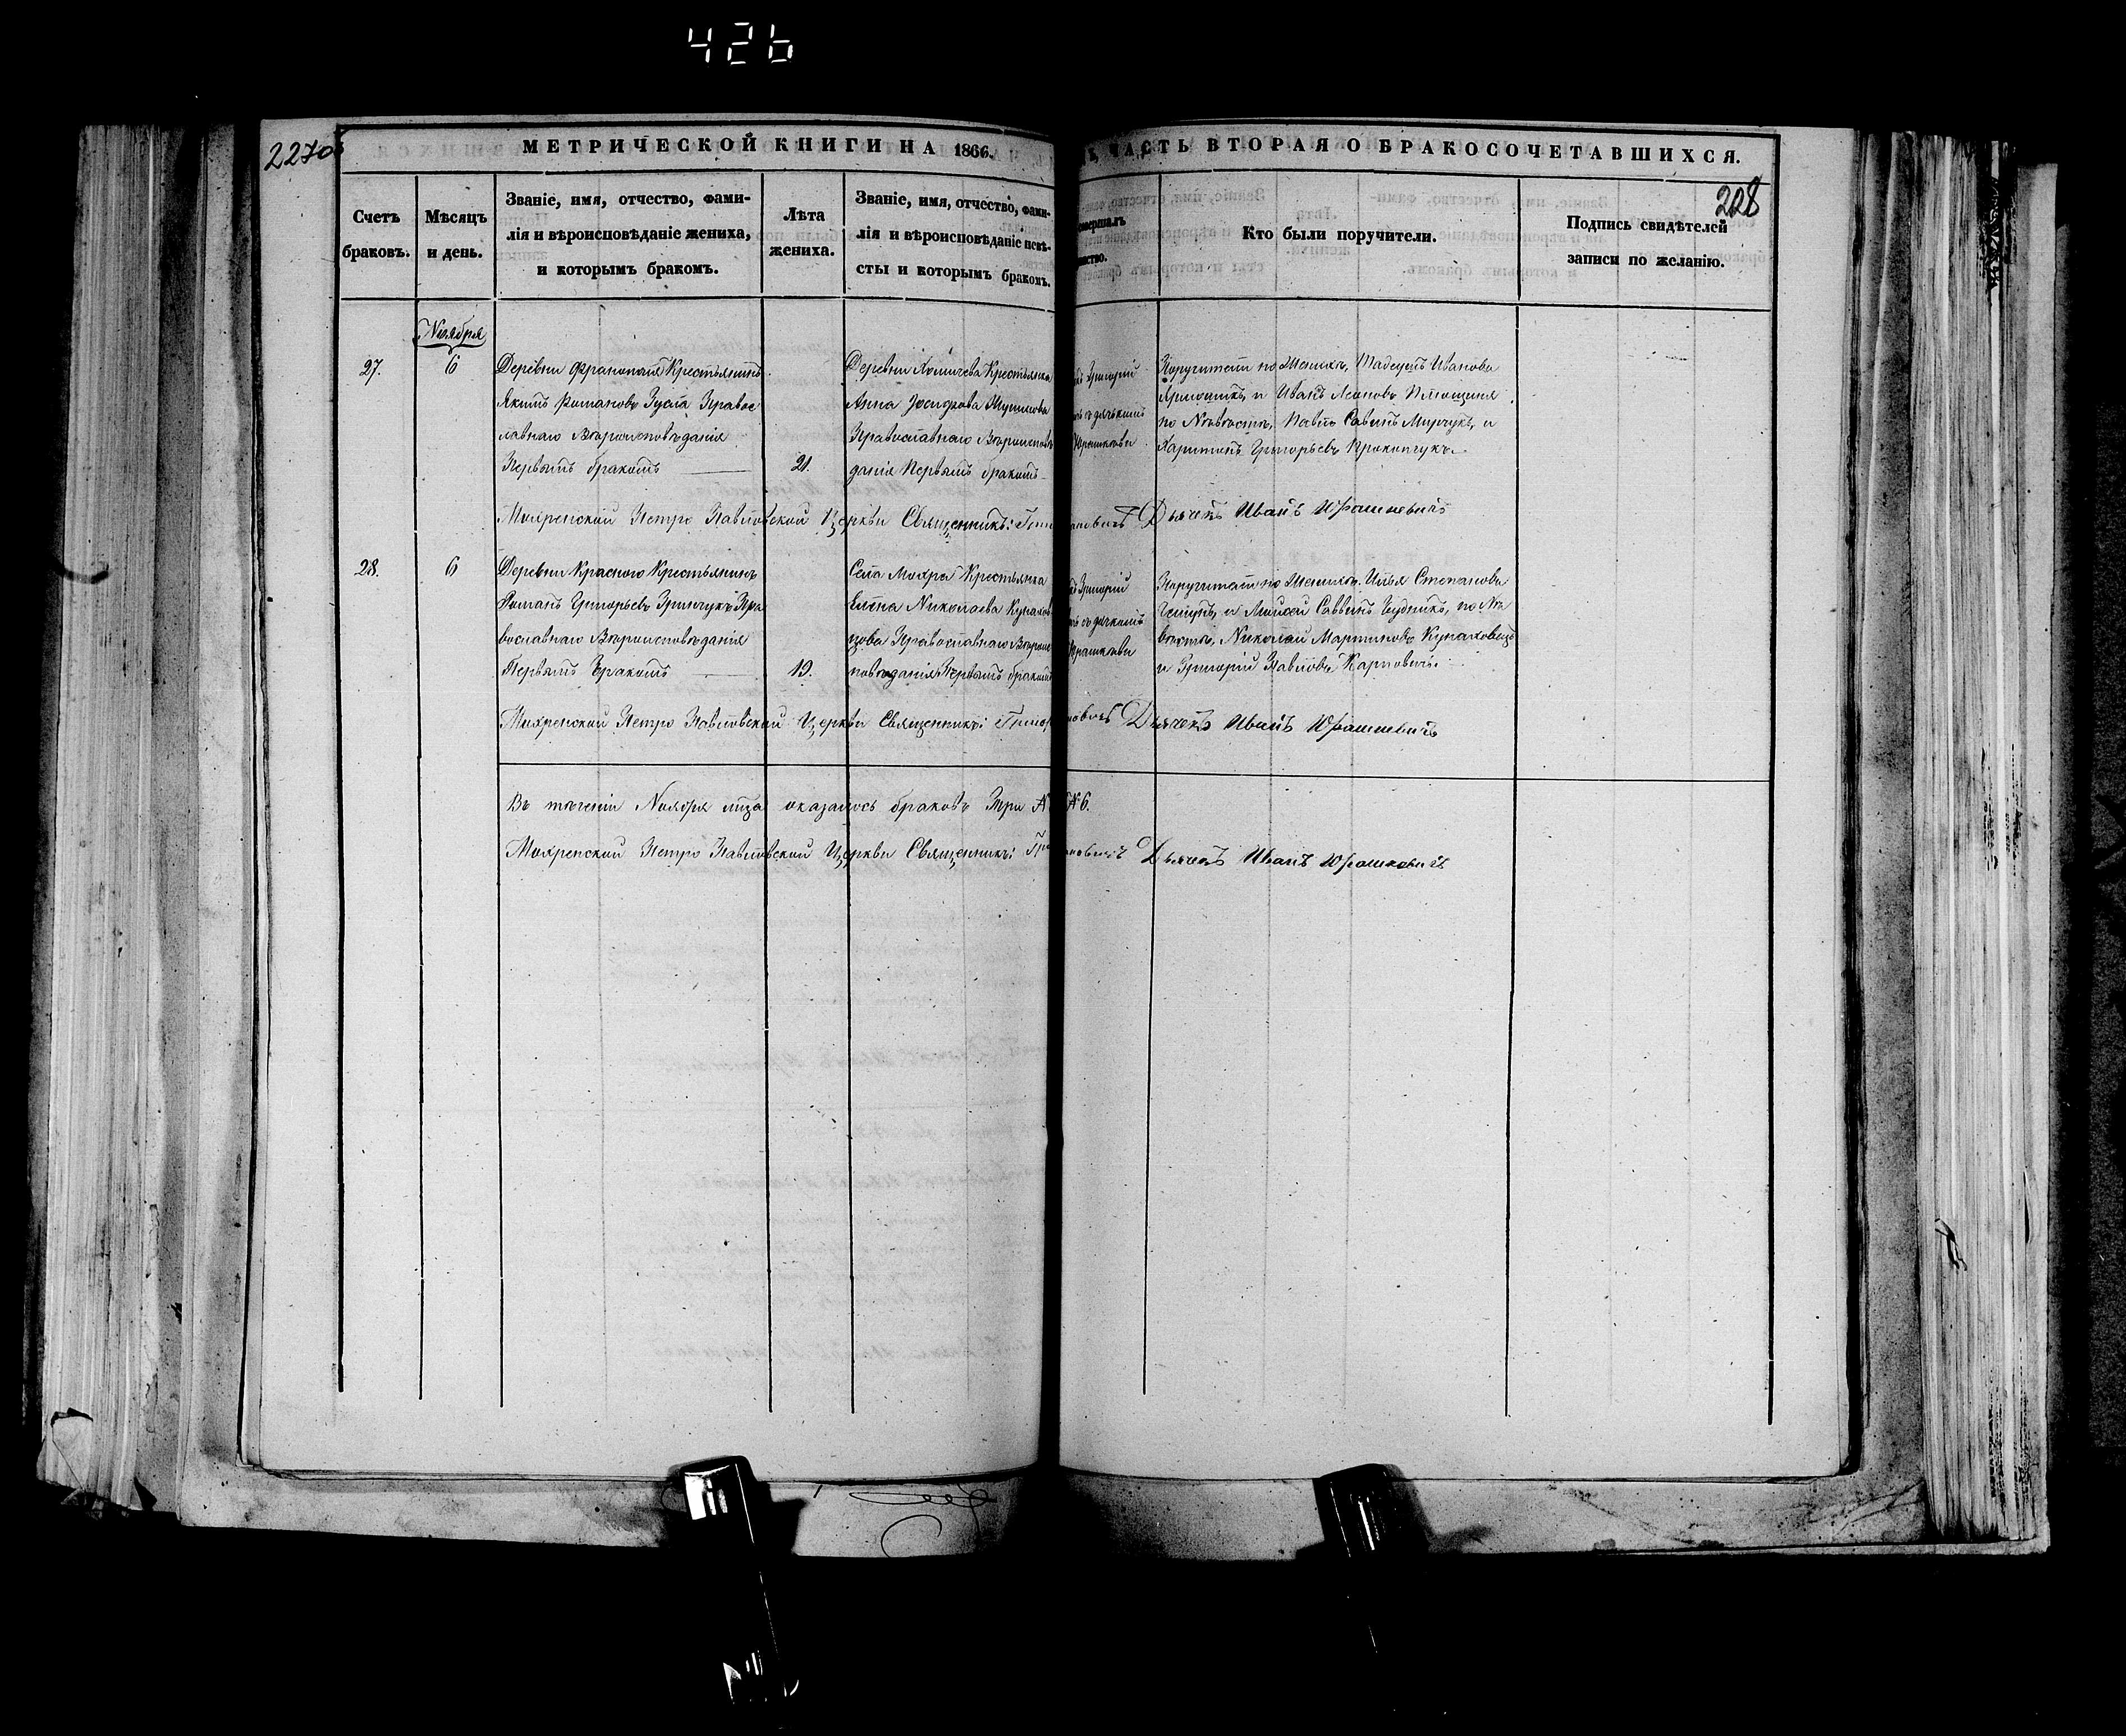 426
2270б
МЕТРИЧЕСКОЙ КНИГИ НА 1866.
ЧАСТЬ ВТОРАЯ О БРАКОСОЧЕТАВШИХСЯ.
228
Счетъ
браковъ.
Мѣсяцъ
и день.
Званіе, имя, отчество, фами-
лія и вѣроисповѣданіе жениха,
и которымъ бракомъ.
Лѣта
жениха.
Званіе, имя, отчество, фами-
лія и вѣроисповѣданіе невѣ-
сты и которымъ бракомъ.
Кто были поручители.
Подпись свидѣтелей
записи по желанію.
Ноября
27.
6
Деревни Франополя Крестьянинъ
Якимъ Романовъ Правос
лавнаго Вѣроисповѣданія
Первымъ бракомъ
21.
Деревни Крестьянка
Анна Іосифова
Православнаго Вѣроисповѣ
данія Первымъ бракомъ
Григорій
съ дячькомъ
Поручители по Женихѣ, Тадеушъ Ивановъ
и Иванъ
по Невѣстѣ, Павелъ Савинъ и
Харитонъ Григорьевъ Прокопчукъ.
Мохренской Петро Павловской Церкви Священникъ:
Дьячекъ Иванъ Юрашкевичъ
28.
6
Деревни Красного Крестьянинъ
Романъ Григорьевъ Гринчукъ Пра
вославнаго Вѣроисповѣданія
Первымъ Бракомъ
19.
Села Мохра Крестьянка
Елена Николаева Кунахов
цова Православнаго Вѣроис
повѣданія Первымъ бракомъ
Григорій
съ дячкомъ
Поручители по Женихѣ. Илья Степановъ
и Саввинъ Будникъ, по Не
вѣстѣ, Николай Мартиновъ Кунаховецъ
и Григорій Павловъ Карповичъ.
Мохренской Петро Павловской Церкви Священникъ:
Дьячекъ Иванъ Юрашкевичъ
Въ теченіи Ноября м-ца оказалось браковъ Три
№ 6.
Мохренской Петро Павловской Церкви Священникъ:
Дьячекъ Иванъ Юрашкевичъ